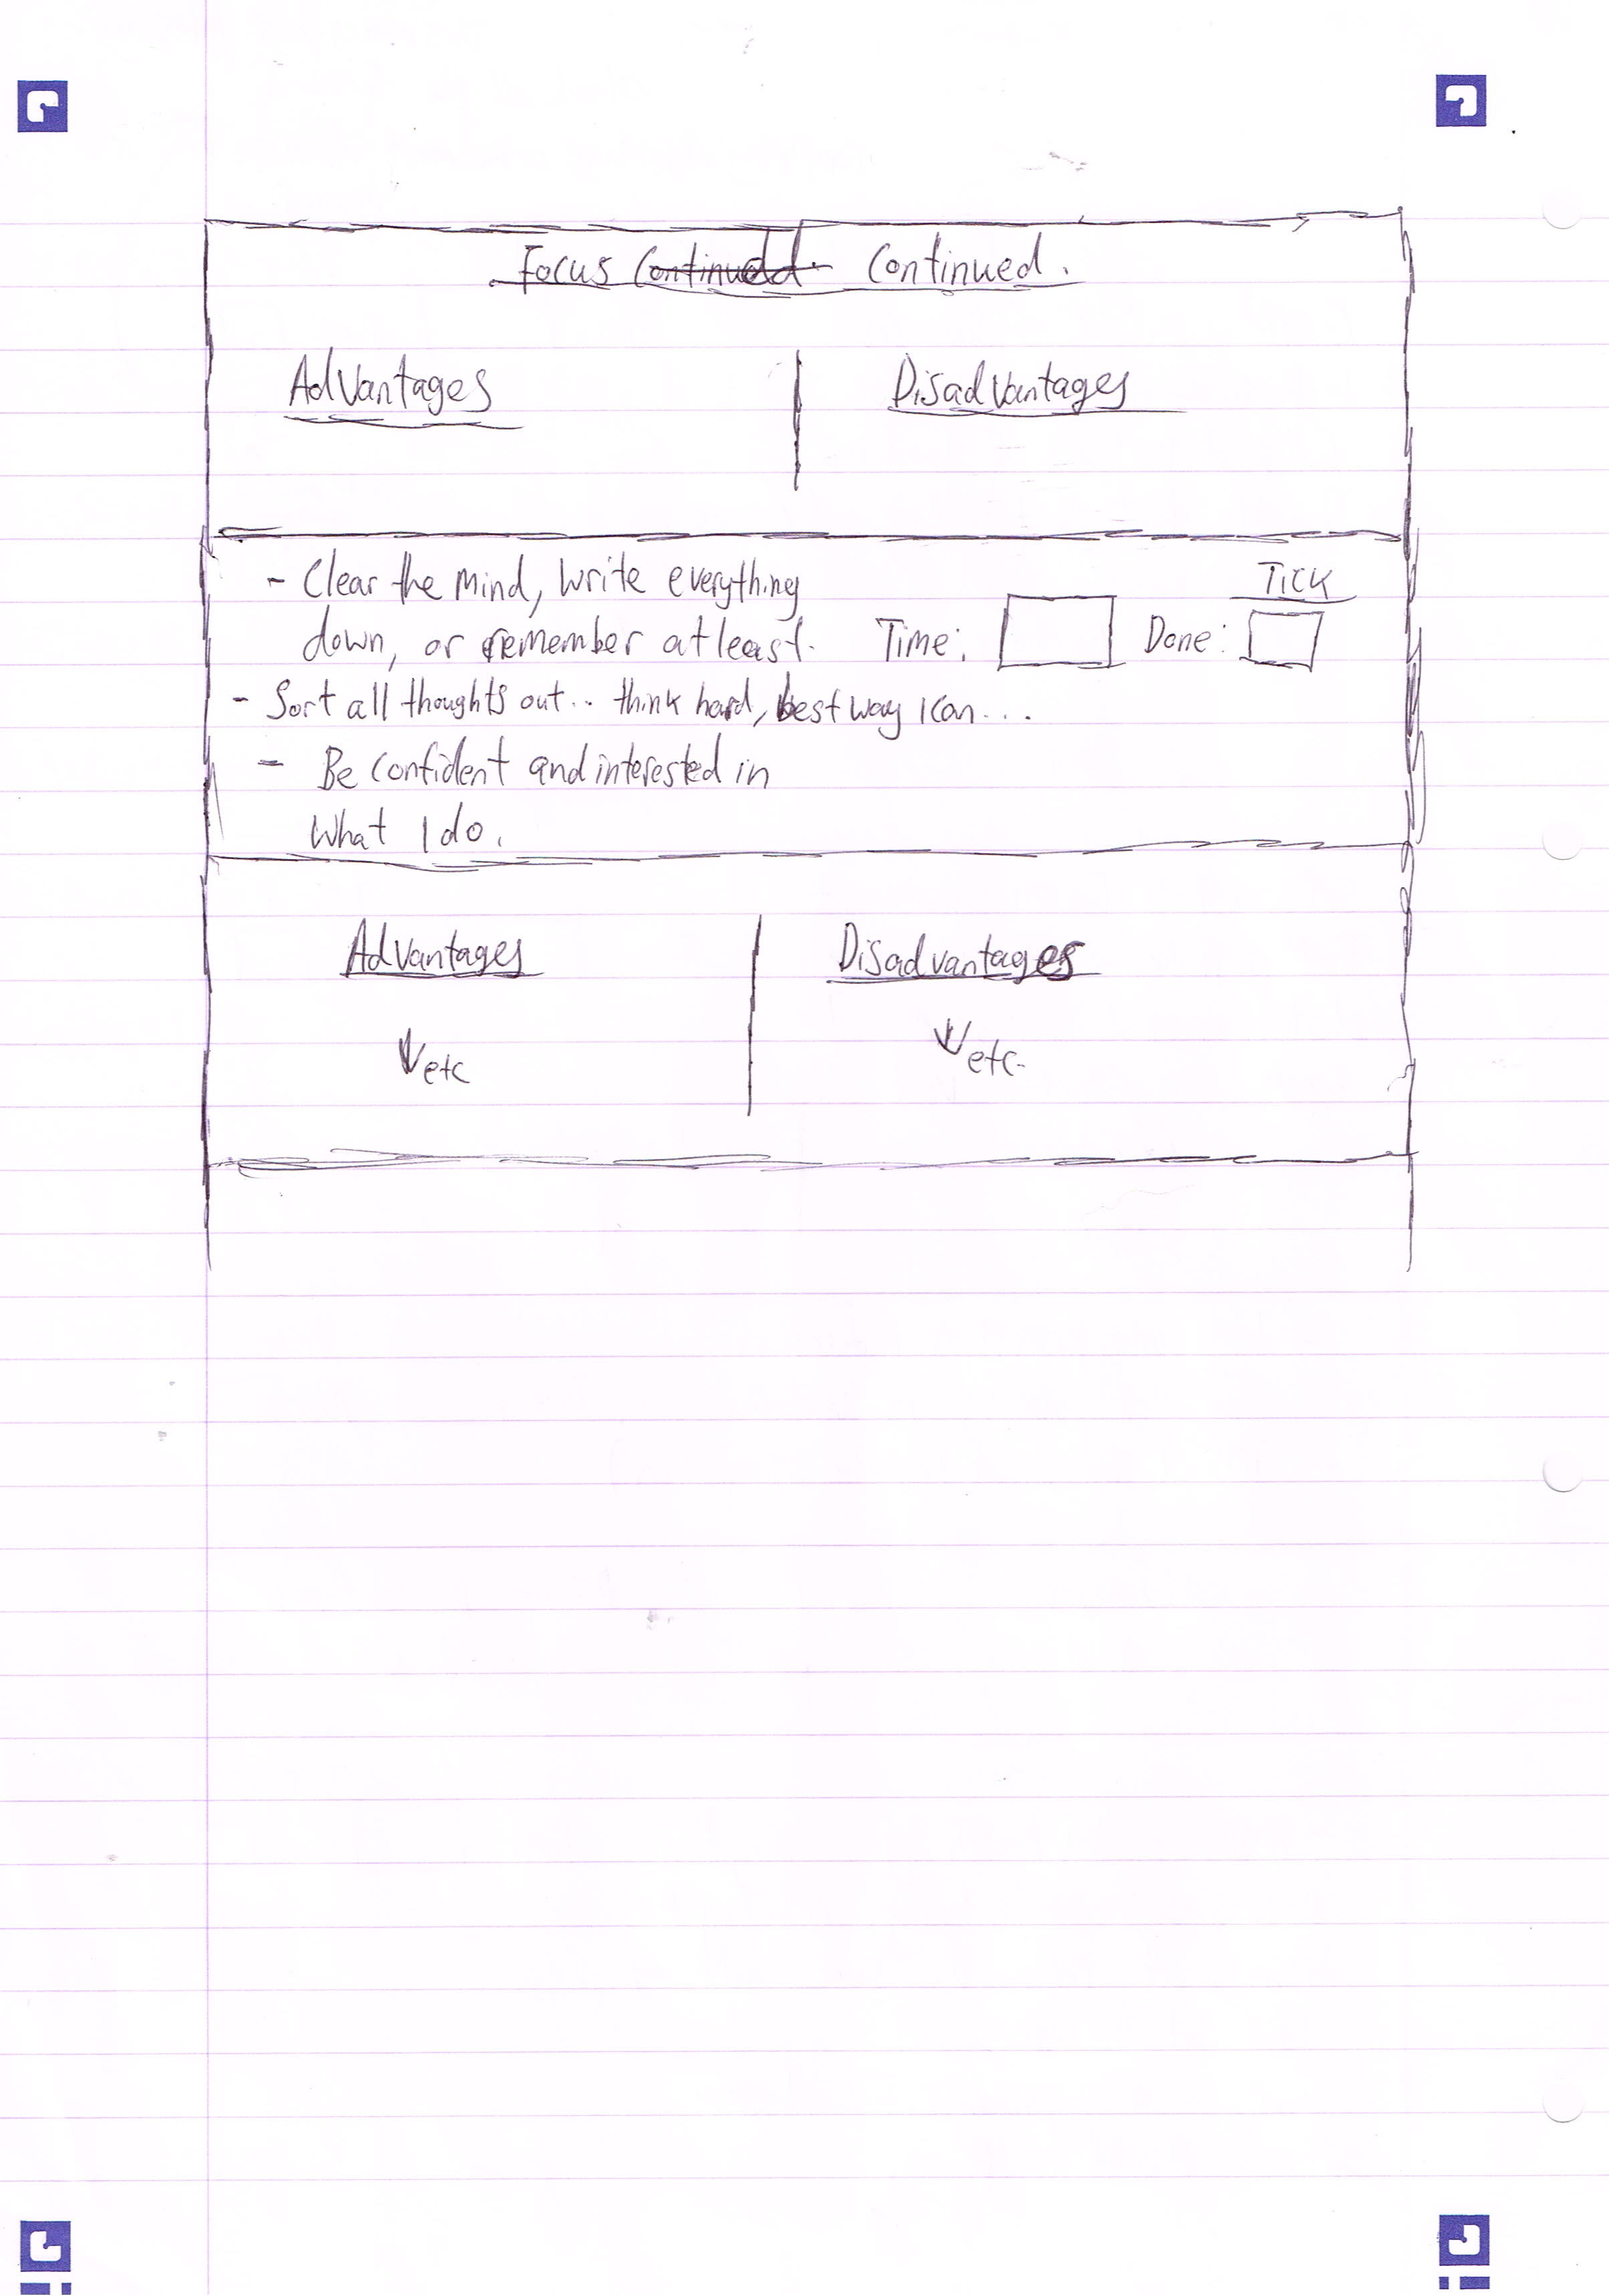 Focus Continued. Continued.
Advantages
Disadvantages
- Clear the mind, write everything
down, or remember at least.
Time:
Done:
TICK
- Sort all thoughts out.. think hard, best way I can...
- Be confident and interested in
what I do.
Advantages
Disadvantages
etc
etc.